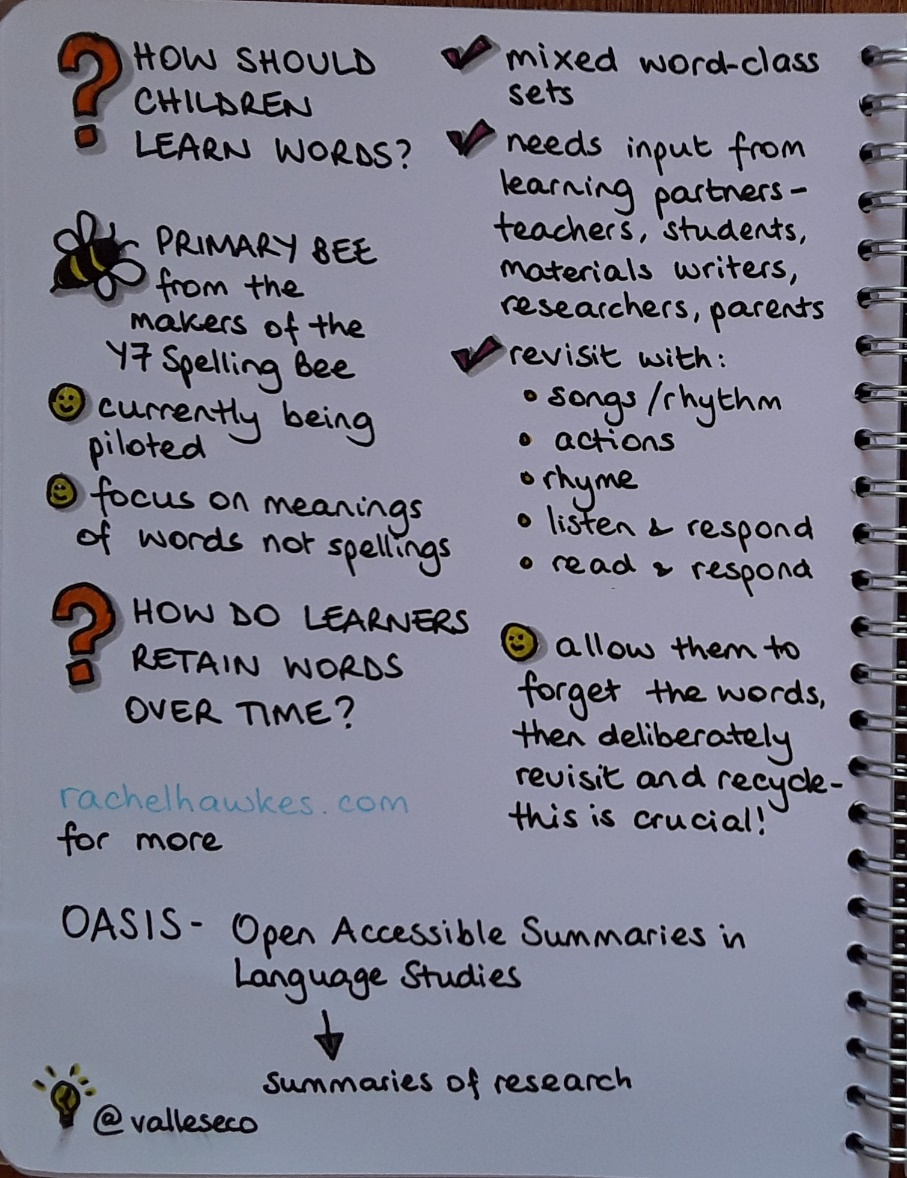 HOW SHOULD
CHILDREN
LEARN WORDS?
PRIMARY BEE
from the
makers of the
Y7 Spelling Bee
currently being
piloted
focus on meanings
of words not spellings
HOW DO LEARNERS
RETAIN WORDS
OVER TIME?
rachelhawkes.com
for more
mixed word-class
sets
needs input from
learning partners-
teachers, students,
materials writers,
researchers, parents
revisit with:
• songs/rhythm
• actions
• rhyme
• listen & respond
• read & respond
allow them to
forget the words,
then deliberately
revisit and recycle-
this is crucial!
OASIS- Open Accessible Summaries in
Language Studies
summaries of research
@valleseco